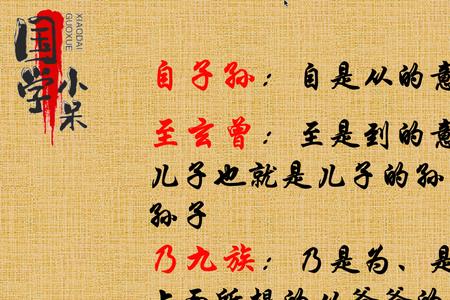 国学
小呆
XIAODAI
GUOXUE
自子孙：自是从的意
至玄曾：至是到的意
儿子也就是儿子的孙
孙子
乃九族：乃是为、是